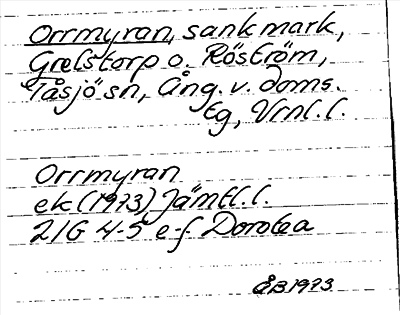 Orrmyran, sank mark,
Grelstorp o. Röström,
Tåsjö sn, Ång. v. doms.
tg, Vrnl. l.
Orrmyran
ek (1973) Jämtl. l.
21G 4-5 e-f Dorotea
EB 1973